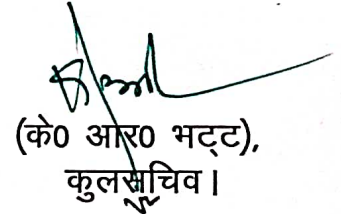 (के0 आर0 भट्ट),
कुलसचिव।